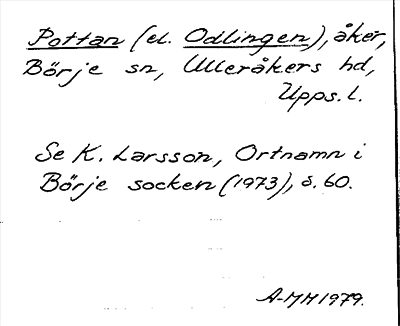 Pottan (el. Odlingen), åker,
Börje sn, Ulleråkers hd,
Upps. l.
Se K. Larsson, Ortnamn i
Börje socken (1973), s. 60.
A-MH 1979.